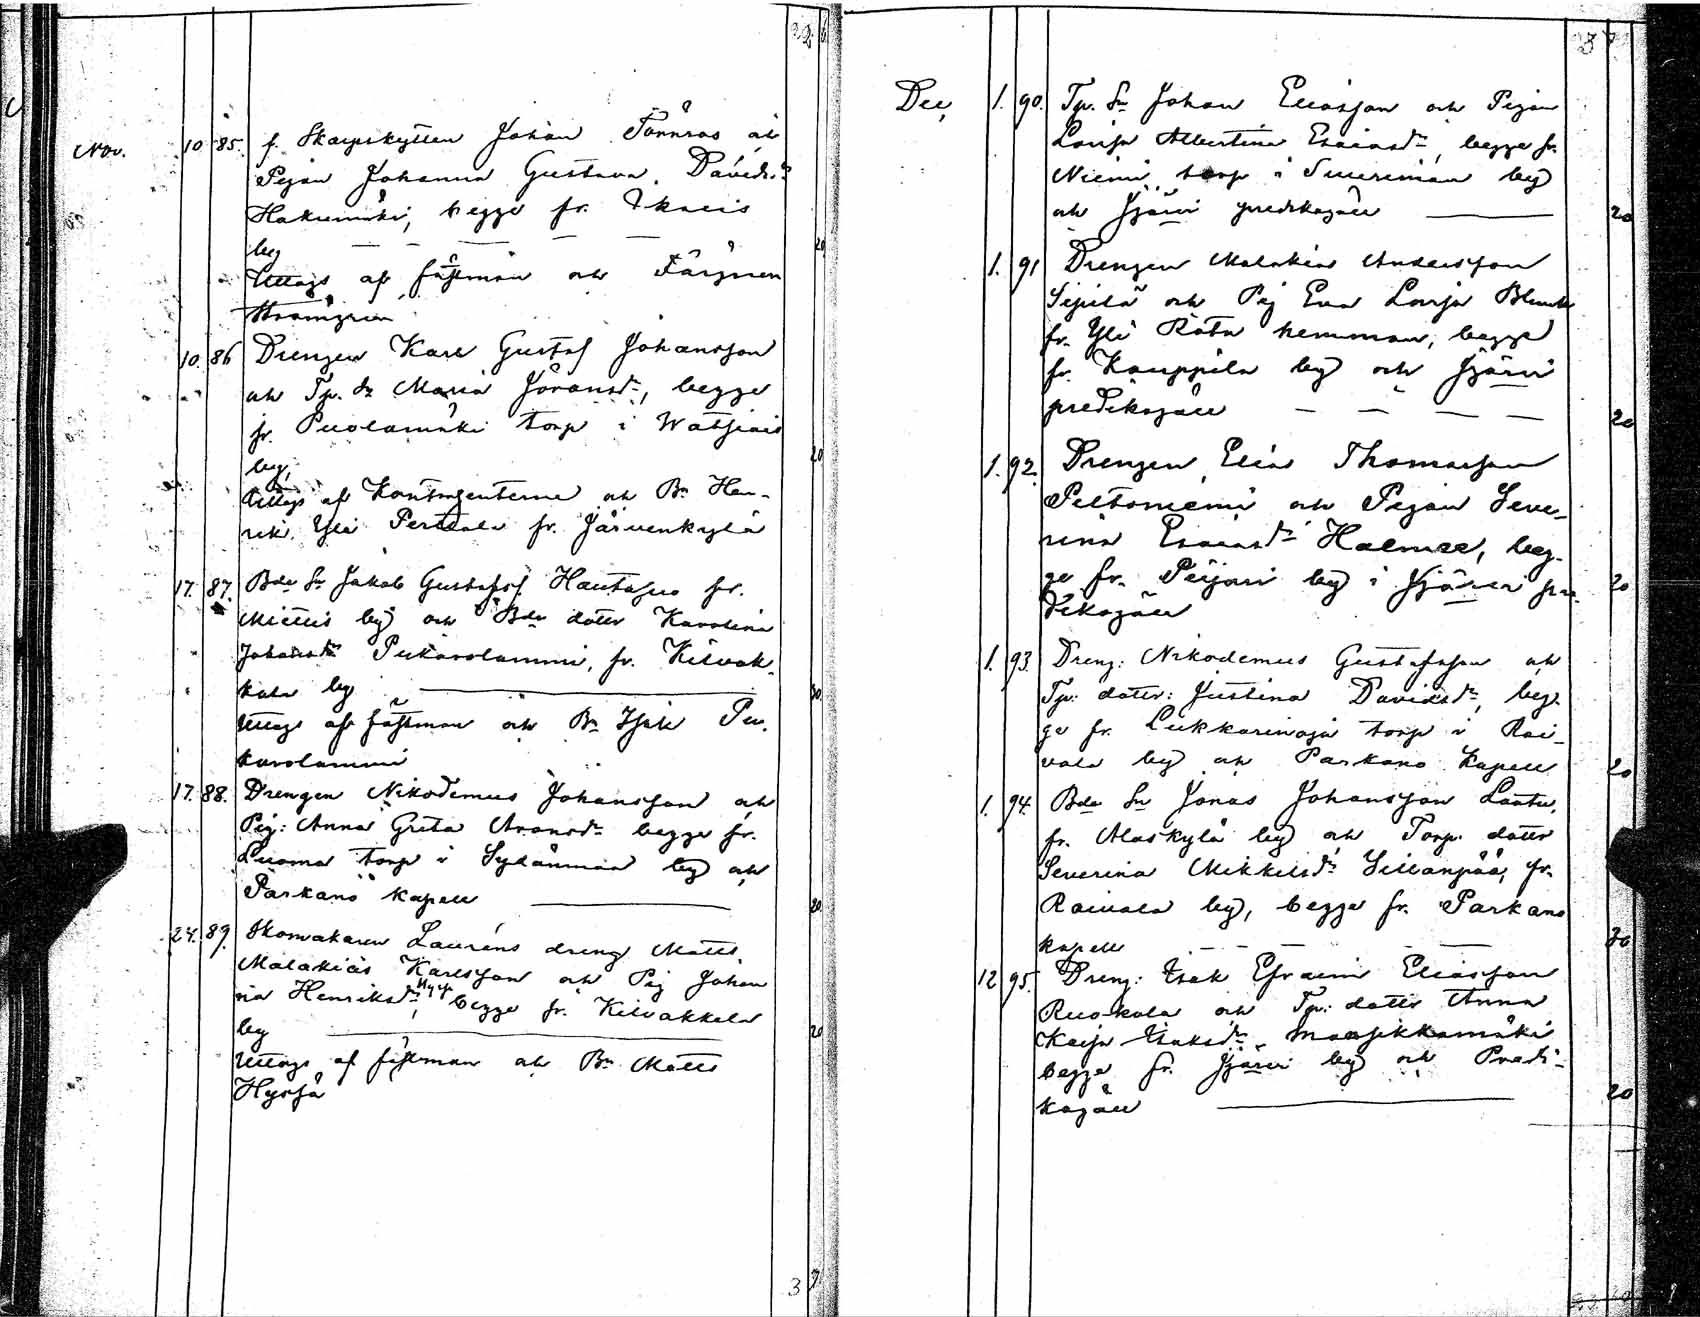 32
Nov. 10 85. f. Skarpskytten Johan Törnroos och
Pigan Johanna Gustava Davidsdr
Hakumäki, begge fr.
by 20
Uttags af fästman och Färgaren
Strömgren
10. 86 Drengen Karl Gustaf Johansson
och Tp. dr Maria Göransdr, begge
fr. Puolamäki torp i Watsiais
by, 20
Uttags af Kontrahenterne och Bn Hen-
rik Yli Perttula fr. Järvenkylä
17. 87. Bde Sn Jakob Gustafss. Hautaluo fr.
Miettis by och Bde dotter Karolina
Johansdr Pukarolammi, fr. Kilvak-
kala by 20.
Uttags af fästman och Bn Isak Pu-
karolammi
17. 88. Drengen Nikodemus Johansson och
Pig: Anna Greta Aronsdr begge fr.
Luoma torp i Sydänmaa by och
Parkano kapell 20.
24. 89. Skomakaren Lauréns dreng Matts
Malakias Karlsson och Pig Johan
na Henriksdr begge fr. Kilvakkala
by 20
Uttags af fästman och Bn Matts
Hyrsfå
37
37
Dec, 1. 90. Tp. Sn Johan Eliasson och Pigan
Lovisa Albertina Esaiasdr, begge fr.
Niemi torp i Sueriman by
och Jjärvi predikogäll 20
1. 91 Drengen Malakias Andersson
Sipilä och Pig Eva Lovisa
fr. Yli Röta hemman, begge
fr. Kauppila by och Jjärvi
predikogäll 20
1. 92. Drengen Elias Thomasson
Peltoniemi och Pigan Seve-
rina Esaiasdr Halmee, beg-
ge fr. Peijari by i Jjärvi pre- 20
dikogäll
1. 93. Dreng: Nikodemus Gustafsson och
Tp: dotter: Justina Davidsdr, beg-
ge fr. Liukkarinoja torp i Rai-
vala by och Parkano Kapell 20
1. 94. Bde Sn Jonas Johansson Lantu,
fr. Alaskylä by och Torp. dotter
Severina Mikkelsdr Sillanpää, fr.
Raivala by, begge fr. Parkano
kapell 20
12 95. Dreng: Isak Efraim Eliasson
Ruokola och Tp: dotter Anna
Kajsa Isaksdr Mansikkamäki
begge fr. Jjärvi by och Predi-
kogäll 20